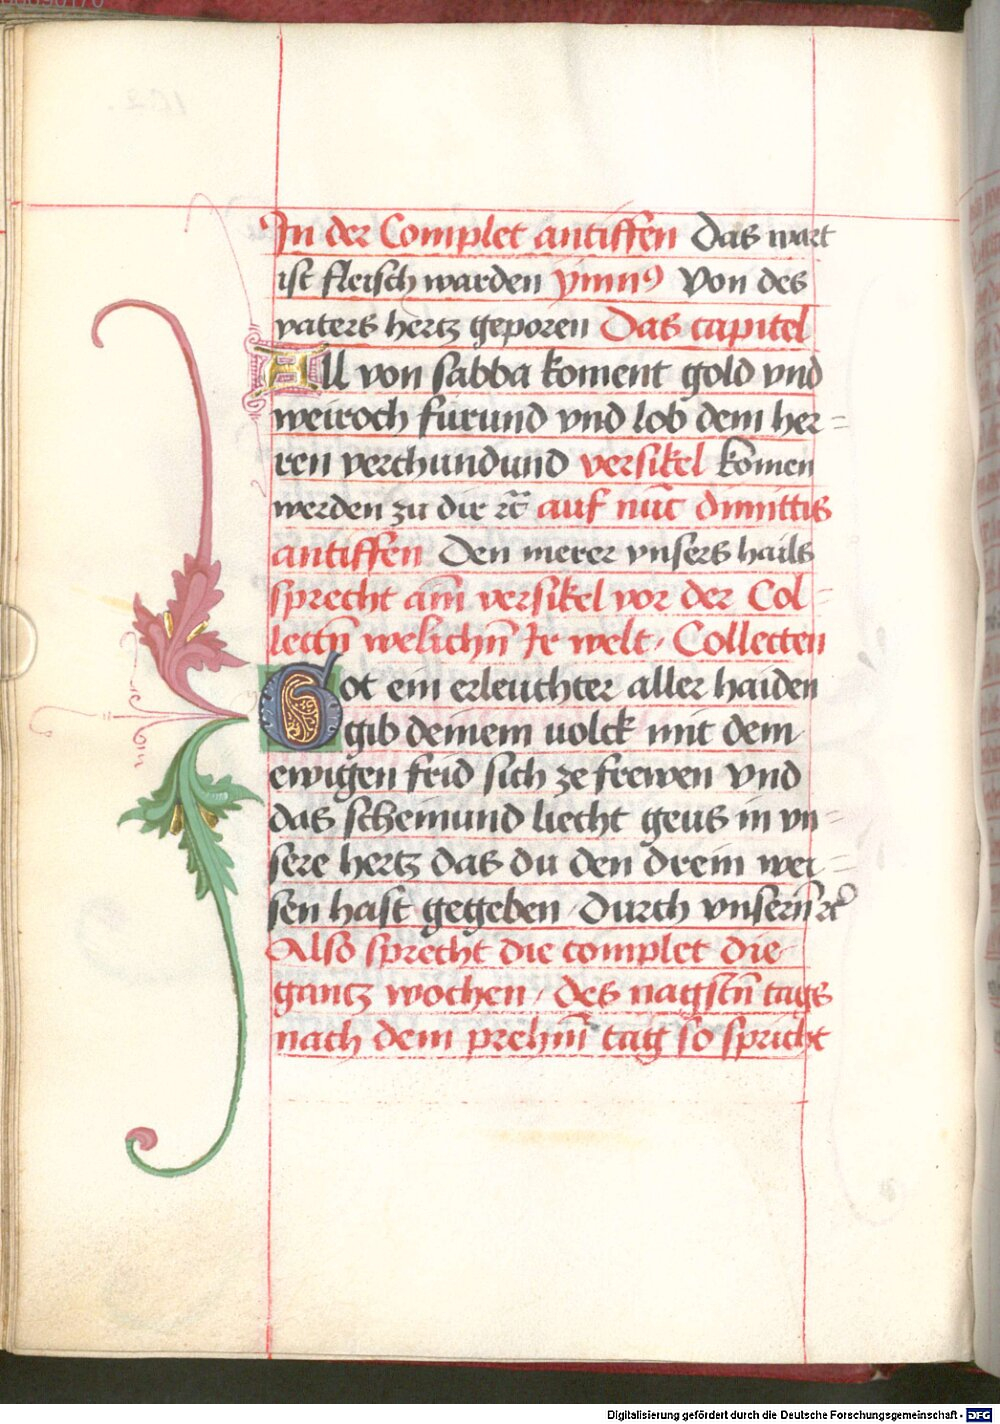 In der Complet antiffen Das wart
ist fleisch warden ymnꝰ Von des
vaters hertz geporen Das capitel
All von sabba koment gold vnd
weiroch fürund vnd lob dem her=
ren verchundund versikel komen
werden zu dir ꝛc̄ auf nūc dimittis
antiffen Den merer vnsers hails
sprecht ain versikel vor der Col=
lectn̄ welichn̄ Ir welt / Collecten
Got ein erleuchter aller haiden
gib deinem uolck mit dem
ewigen frid sich ze frewen vnd
das scheinund liecht geus in vn=
sere hertz das du den drein wei=
sen hast gegeben / Durch vnsern̄ ꝛc
Also sprecht die complet die
gantz wochen / des nagstn̄ tags
nach dem prehm̄ tag so spricht
Digitalisierung gefördert durch die Deutsche Forschungsgemeinschaft - DFG